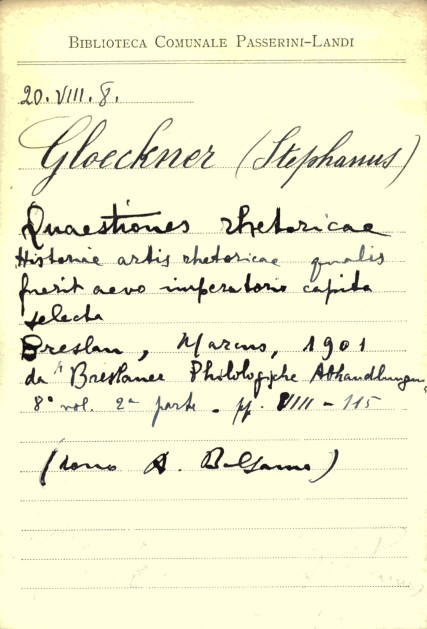 BIBLIOTECA COMUNALE PASSERINI-LANDI
20. VIII. 8.
Gloeckner (Stephanus)
Quaestiones rhetoricae
Historiae artis rhetoricae qualis
fuerit aevo imperatorio capita
selecta
Breslau, Marcus, 1901
da "Breslauer Philologische Abhandlungen"
8° vol. 2ª parte - pp. VIII - 115
(dono A. Balsamo)